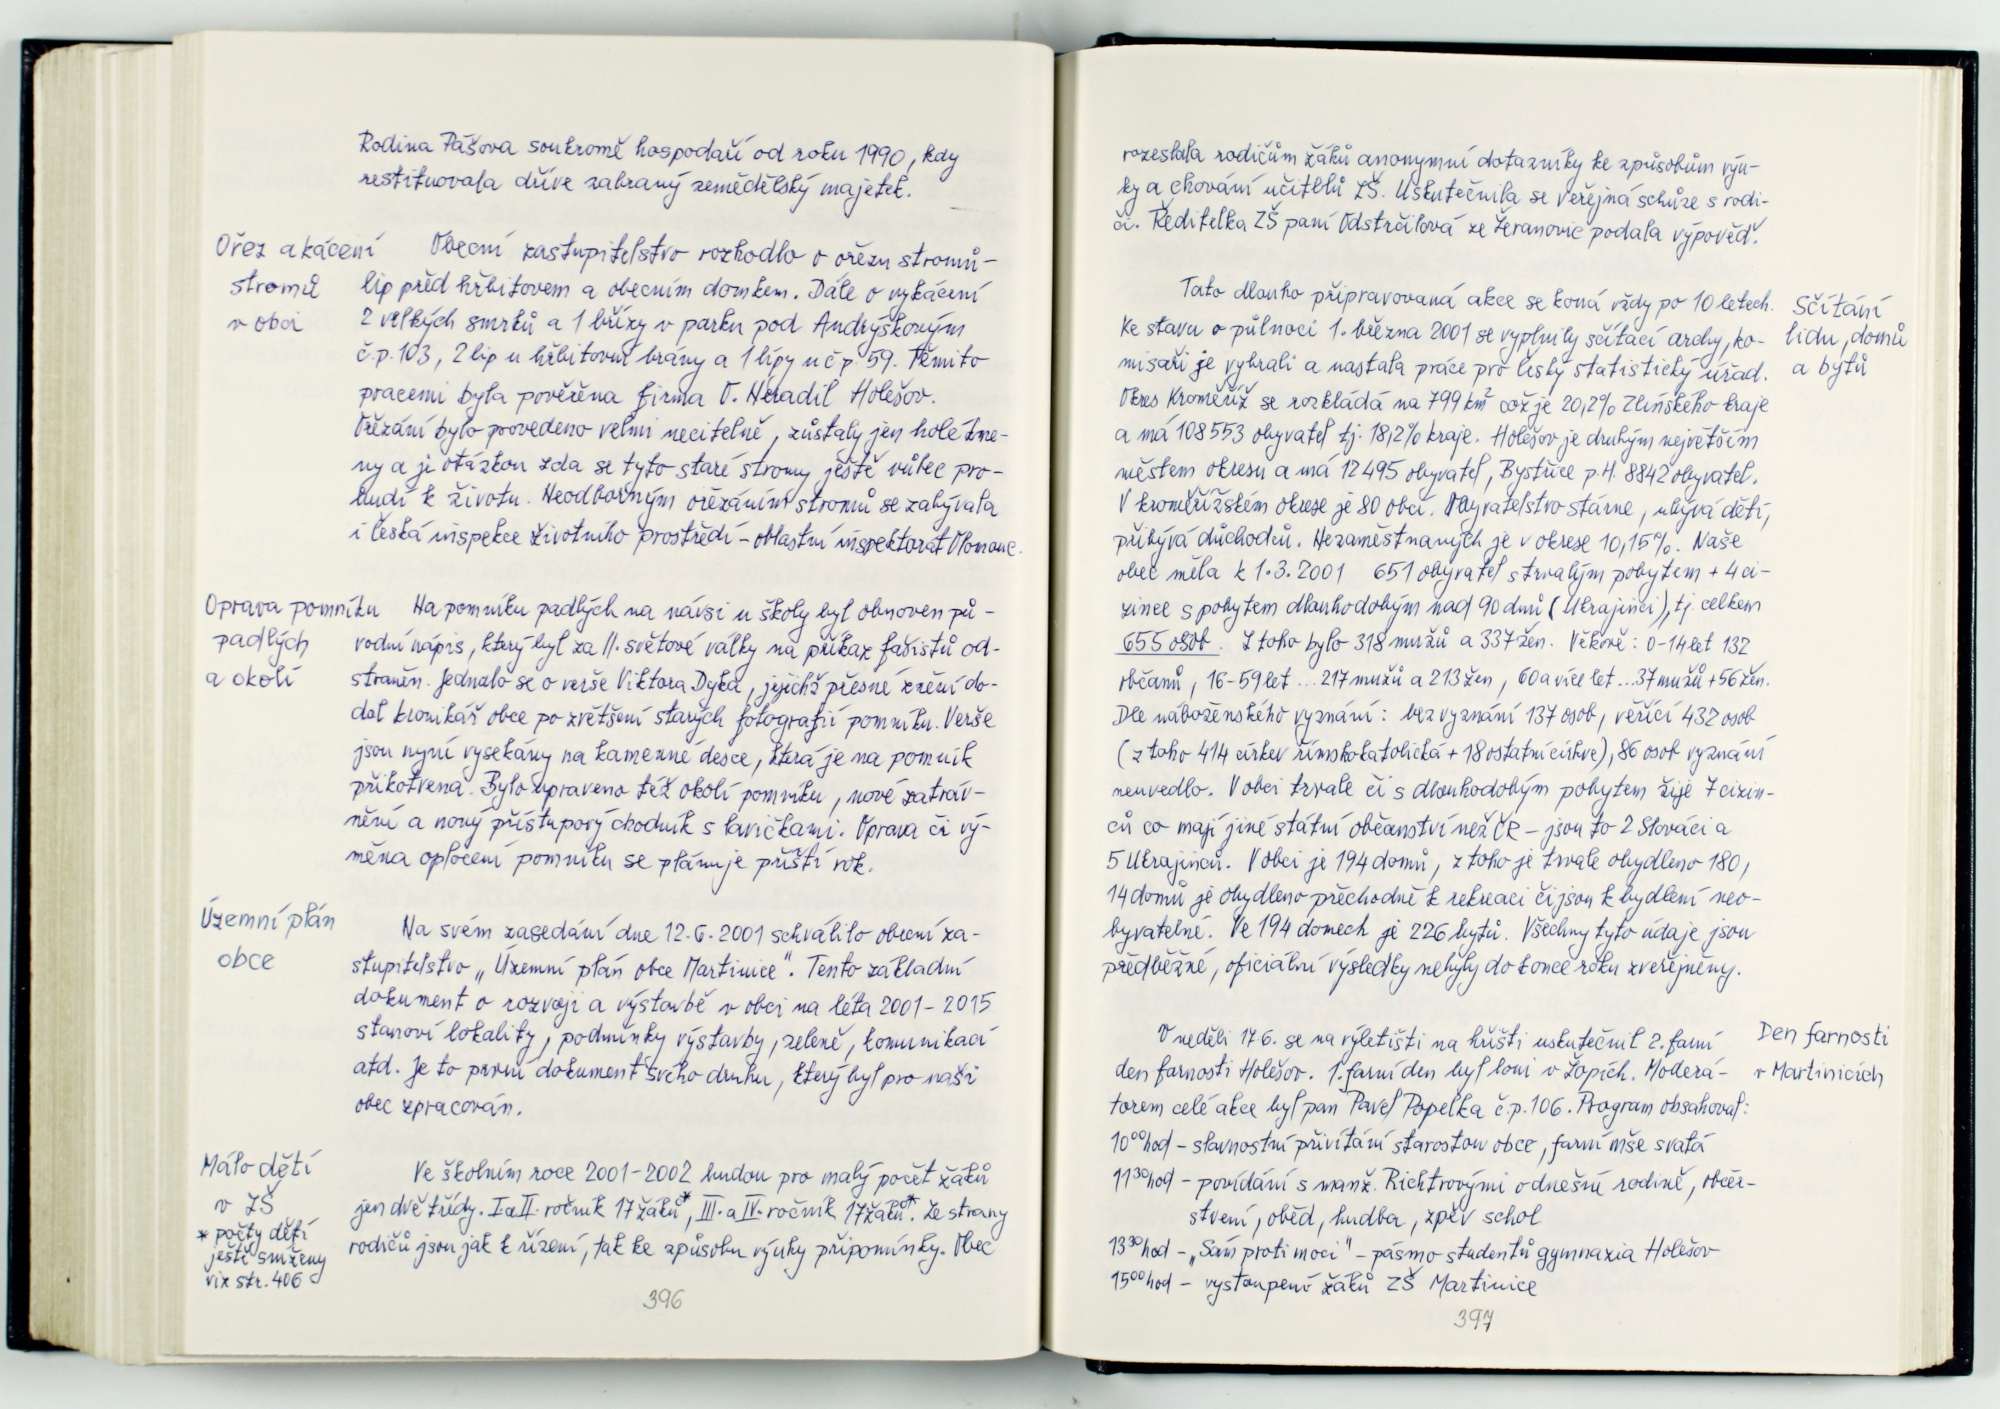 Rodina Pášova soukromě hospodaří od roku 1990, kdy
restituovala dříve zabraný zemědělský majetek.
Ořez a kácení
stromů
v obci
Obecní zastupitelstvo rozhodlo o ořezu stromů-
lip před hřbitovem a obecním domkem. Dále o vykácení
2 velkých smrků a 1 břízy v parku pod Andrýskovým
č.p. 103, 2 lip u hřbitovní brány a 1 lípy u č.p. 59. Těmito
pracemi byla pověřena firma O. Hradil Holešov.
Ořezání bylo provedeno velmi necitelně, zůstaly jen holé kme-
ny a je otázkou zda se tyto staré stromy ještě vůbec pro-
budí k životu. Neodborným ořezáním stromů se zabývala
i Česká inspekce životního prostředí - oblastní inspektorát Olomouc.
Oprava pomníku
padlých
a okolí
Na pomníku padlých na návsi u školy byl obnoven pů-
vodní nápis, který byl za II. světové války na příkaz fašistů od-
straněn. Jednalo se o verše Viktora Dyka, jejichž přesné znění do-
dal kronikář obce po zvětšení starých fotografií pomníku. Verše
jsou nyní vysekány na kamenné desce, která je na pomník
přikotvena. Bylo upraveno též okolí pomníku, nové zatráv-
nění a nový přístupový chodník s lavičkami. Oprava či vý-
měna oplocení pomníku se plánuje příští rok.
Územní plán
obce
Na svém zasedání dne 12.6.2001 schválilo obecní za-
stupitelstvo „Územní plán obce Martinice". Tento základní
dokument o rozvoji a výstavbě v obci na léta 2001-2015
stanoví lokality, podmínky výstavby, zeleně, komunikací
atd. Je to první dokument svého druhu, který byl pro naši
obec zpracován.
Málo dětí
v ZŠ
* počty dětí
ještě sníženy
viz str. 406
Ve školním roce 2001-2002 budou pro malý počet žáků
jen dvě třídy. I. a II. ročník 17 žáků*, III. a IV. ročník 17 žáků*. Ze strany
rodičů jsou jak k řízení, tak ke způsobu výuky připomínky. Obec
396
rozeslala rodičům žáků anonymní dotazníky ke způsobům výu-
ky a chování učitelů ZŠ. Uskutečnila se veřejná schůze s rodi-
či. Ředitelka ZŠ paní Odstrčilová ze Žeranovic podala výpověď.
Sčítání
lidu, domů
a bytů
Tato dlouho připravovaná akce se koná vždy po 10 letech.
Ke stavu o půlnoci 1. března 2001 se vyplnily sčítací archy, ko-
misaři je vybrali a nastala práce pro český statistický úřad.
Okres Kroměříž se rozkládá na 799 km² což je 20,2% Zlínského kraje
a má 108553 obyvatel tj. 18,2% kraje. Holešov je druhým největším
městem okresu a má 12495 obyvatel, Bystřice p.H. 8842 obyvatel.
V kroměřížském okrese je 80 obcí. Obyvatelstvo stárne, ubývá dětí,
přibývá důchodců. Nezaměstnaných je v okrese 10,15%. Naše
obec měla k 1.3.2001 651 obyvatel s trvalým pobytem + 4 ci-
zince s pobytem dlouhodobým nad 90 dnů (Ukrajinci), tj. celkem
655 osob. Z toho bylo 318 mužů a 337 žen. Věkově: 0-14 let 132
občanů, 16-59 let ... 217 mužů a 213 žen, 60 a více let ... 37 mužů + 56 žen.
Dle náboženského vyznání: bez vyznání 137 osob, věřící 432 osob
(z toho 414 církev římskokatolická + 18 ostatní církve), 86 osob vyznání
neuvedlo. V obci trvale či s dlouhodobým pobytem žije 7 cizin-
ců co mají jiné státní občanství než ČR - jsou to 2 Slováci a
5 Ukrajinců. V obci je 194 domů, z toho je trvale obydleno 180,
14 domů je obydleno přechodně k rekreaci či jsou k bydlení neo-
byvatelné. Ve 194 domech je 226 bytů. Všechny tyto údaje jsou
předběžné, oficiální výsledky nebyly do konce roku zveřejněny.
Den farnosti
v Martinicích
V neděli 17.6. se na výletišti na hřišti uskutečnil 2. farní
den farnosti Holešov. 1. farní den byl loni v Žopích. Moderá-
torem celé akce byl pan Pavel Popelka č.p. 106. Program obsahoval:
10⁰⁰ hod - slavnostní přivítání starostou obce, farní mše svatá
11³⁰ hod - povídání s manž. Richtrovými o dnešní rodině, občer-
stvení, oběd, hudba, zpěv schol
13³⁰ hod - „Sám proti moci" - pásmo studentů gymnazia Holešov
15⁰⁰ hod - vystoupení žáků ZŠ Martinice
397